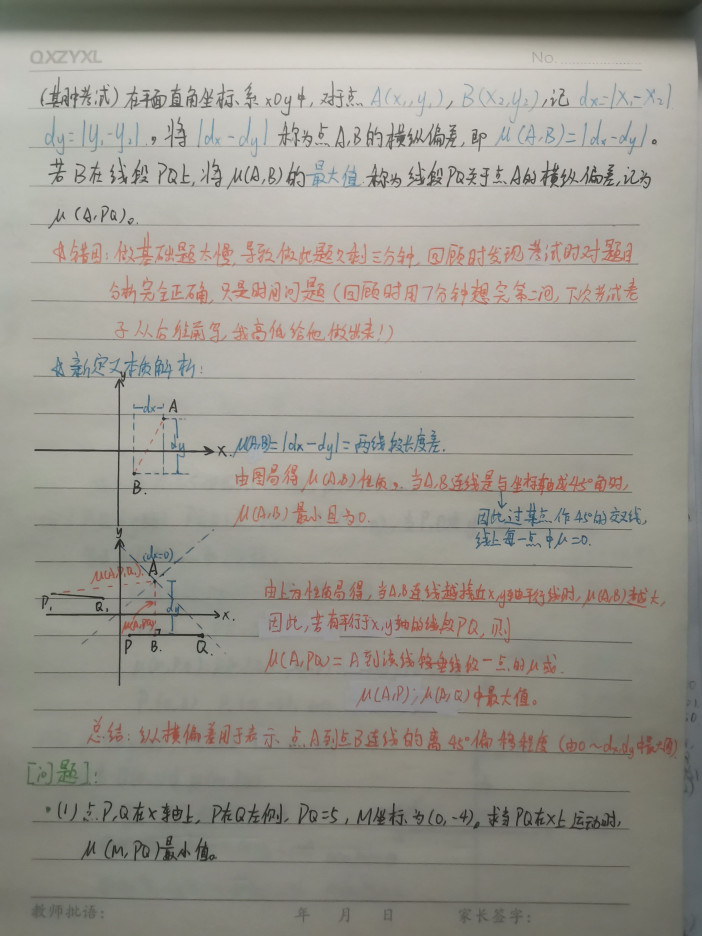 QXZYXL No.
(期中考试)在平面直角坐标系xOy中,对于点A(x₁,y₁),B(x₂,y₂),记dx=|x₁-x₂|
dy=|y₁-y₂|。将|dx-dy|称为点A,B的横纵偏差,即μ(A,B)=|dx-dy|。
若B在线段PQ上,将μ(A,B)的最大值称为线段PQ关于点A的横纵偏差,记为
μ(A,PQ)。
☆错因:做基础题太慢,导致做此题只剩三分钟,回顾时发现考试时对题目
分析完全正确,只是时间问题(回顾时用7分钟想完第二问,下次考试老
子从后往前写,我高低给他做出来!)
☆新定义本质解析:
y
dx
A
dy
x.
B.
μ(A,B)=|dx-dy|=两线段长度差.
由图易得μ(A,B)性质。当A,B连线是与坐标轴成45°角时,
μ(A,B)最小且为0.
因此过某点作45°的交叉线,
线上每一点中μ=0.
y
(dx=0)
A
μ(A,P₁Q₁)
P₁
Q₁
dy
x.
μ(A,PQ)
P
B.
Q.
由上方性质易得,当A,B连线越接近x,y轴平行线时,μ(A,B)越大,
因此,若有平行于x,y轴的线段PQ,则
μ(A,PQ)=A到该线段垂线仅一点的μ或
μ(A,P);μ(A,Q)中最大值。
总结:纵横偏差用于表示点A到点B连线的离45°偏移程度(由0~dx,dy中最大值)
[问题]:
·(1)点P,Q在x轴上,P在Q左侧,PQ=5,M坐标为(0,-4)。求当PQ在x上运动时,
μ(M,PQ)最小值。
教师批语: 年 月 日 家长签字: